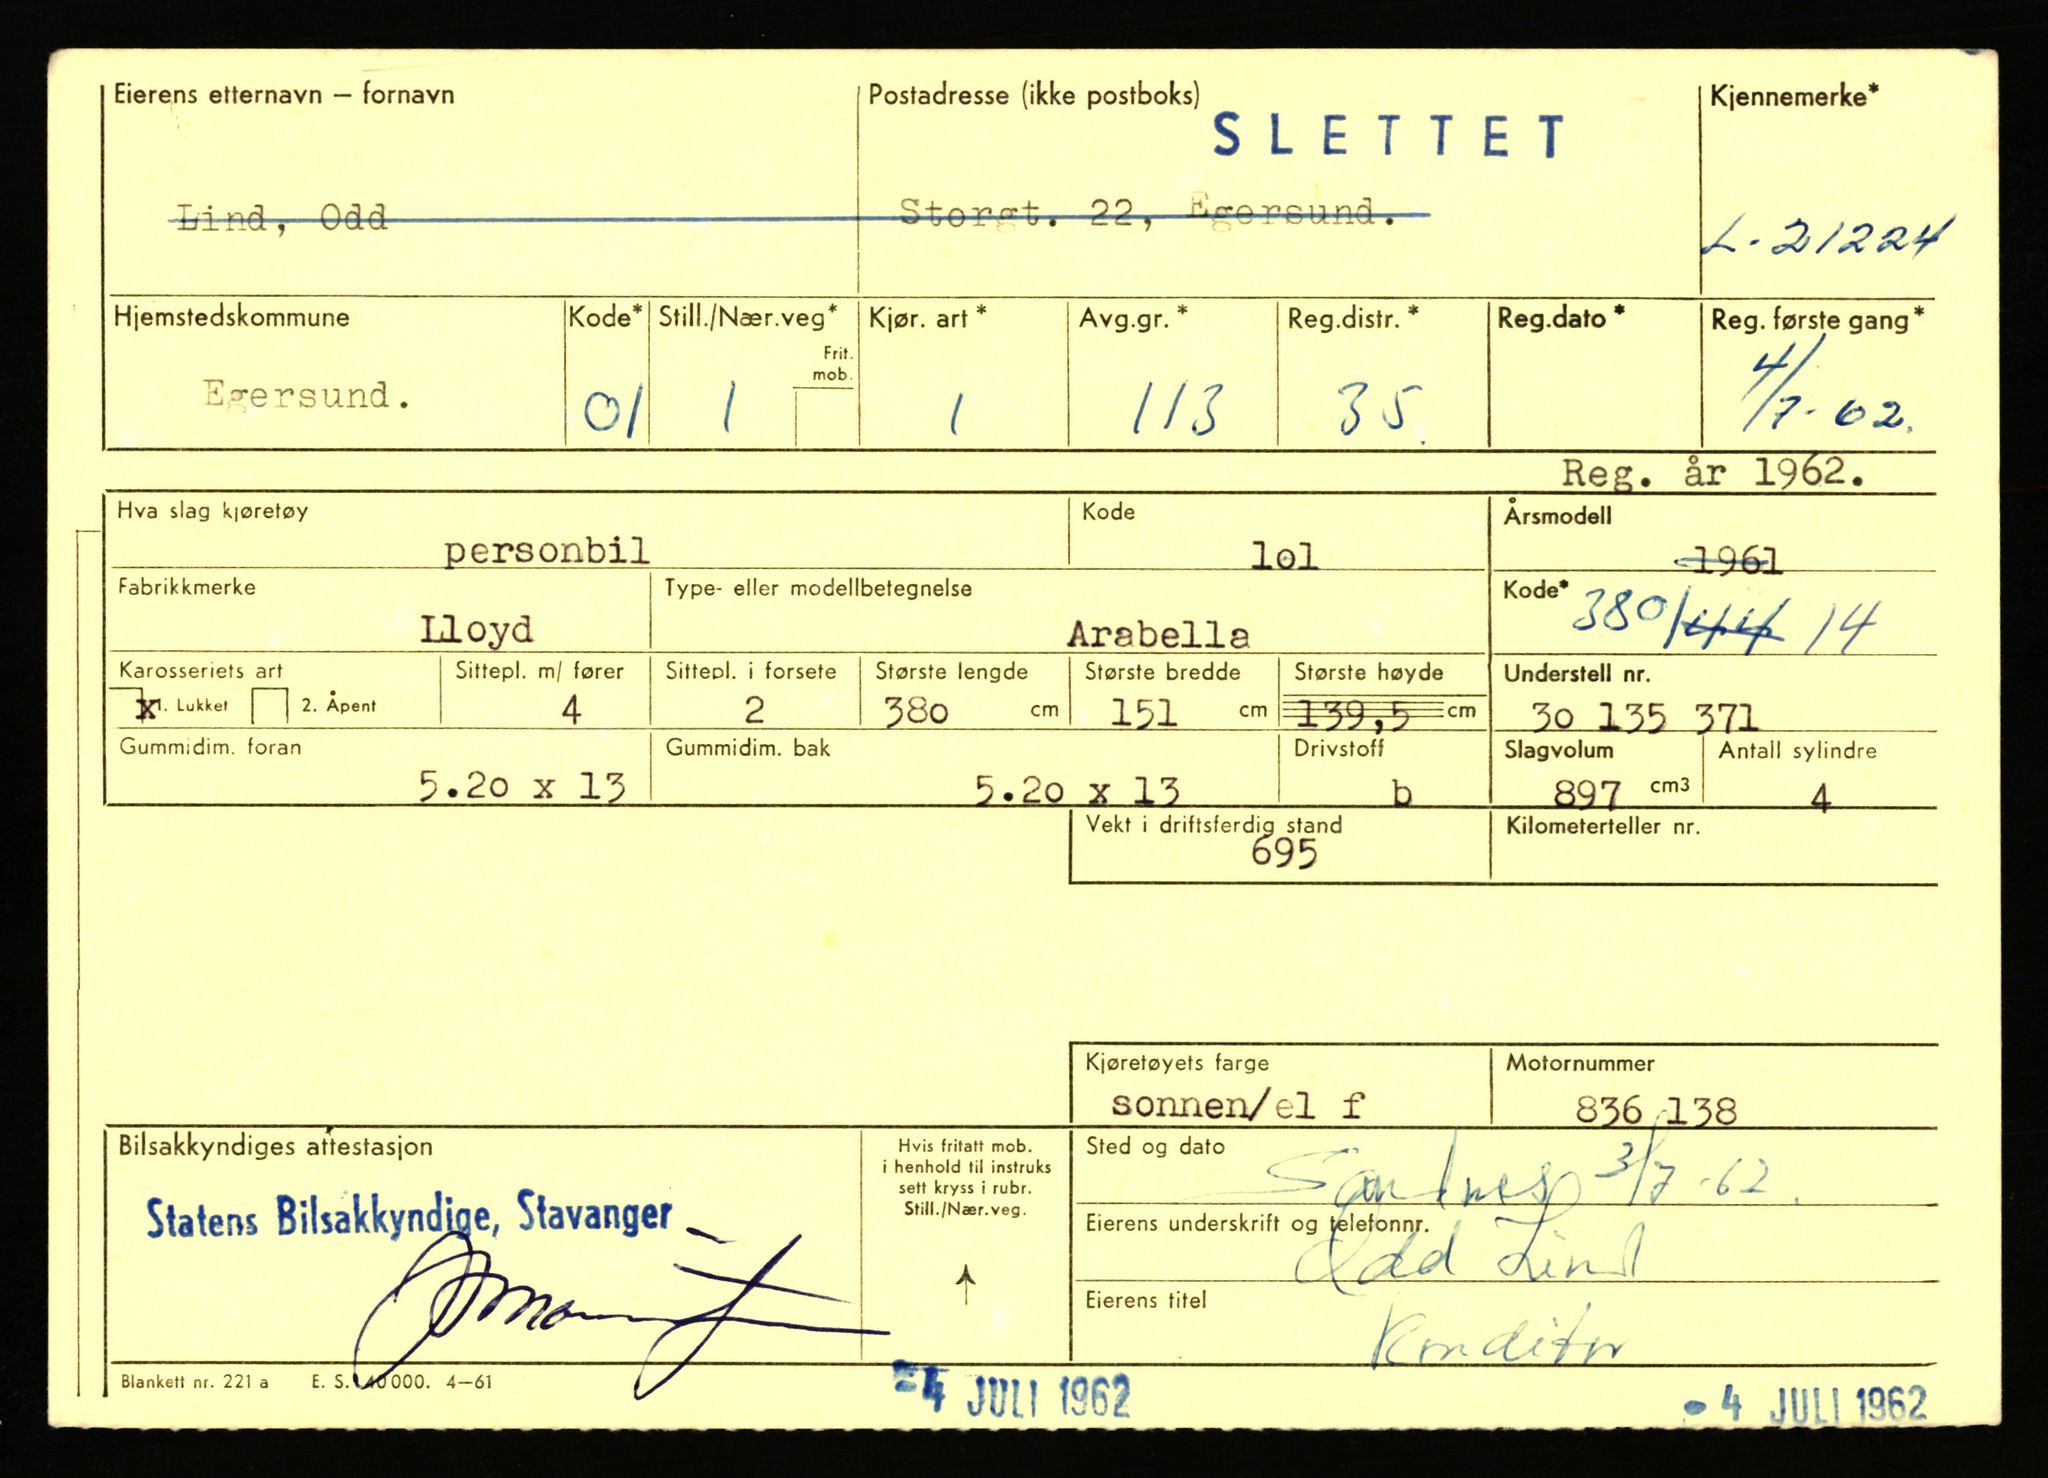 Eierens etternavn – fornavn
Postadresse (ikke postboks)
Kjennemerke*
SLETTET
Lind, Odd
Storgt. 22, Egersund.
L-21224
Hjemstedskommune
Kode*
Still./Nær.veg*
Frit. mob.
Kjør. art*
Avg.gr.*
Reg.distr.*
Reg.dato*
Reg. første gang*
Egersund.
01
1
1
113
35.
4/7-62.
Reg. år 1962.
Hva slag kjøretøy
Kode
Årsmodell
personbil
lol
1961
Fabrikkmerke
Type- eller modellbetegnelse
Kode*
Lloyd
Arabella
380/44 14
Karosseriets art
Sittepl. m/ fører
Sittepl. i forsete
Største lengde
Største bredde
Største høyde
Understell nr.
x 1. Lukket
2. Åpent
4
2
380 cm
151 cm
139,5 cm
30 135 371
Gummidim. foran
Gummidim. bak
Drivstoff
Slagvolum
Antall sylindre
5.20 x 13
5.20 x 13
b
897 cm3
4
Vekt i driftsferdig stand
Kilometerteller nr.
695
Kjøretøyets farge
Motornummer
sonnen/el f
836 138
Bilsakkyndiges attestasjon
Hvis fritatt mob.
i henhold til instruks
sett kryss i rubr.
Still./Nær.veg.
Sted og dato
Sandnes 3/7-62.
Statens Bilsakkyndige, Stavanger
Eierens underskrift og telefonnr.
Odd Lind
Eierens titel
Konditor
Blankett nr. 221 a E. S. 40 000. 4–61
-4 JULI 1962
-4 JULI 1962